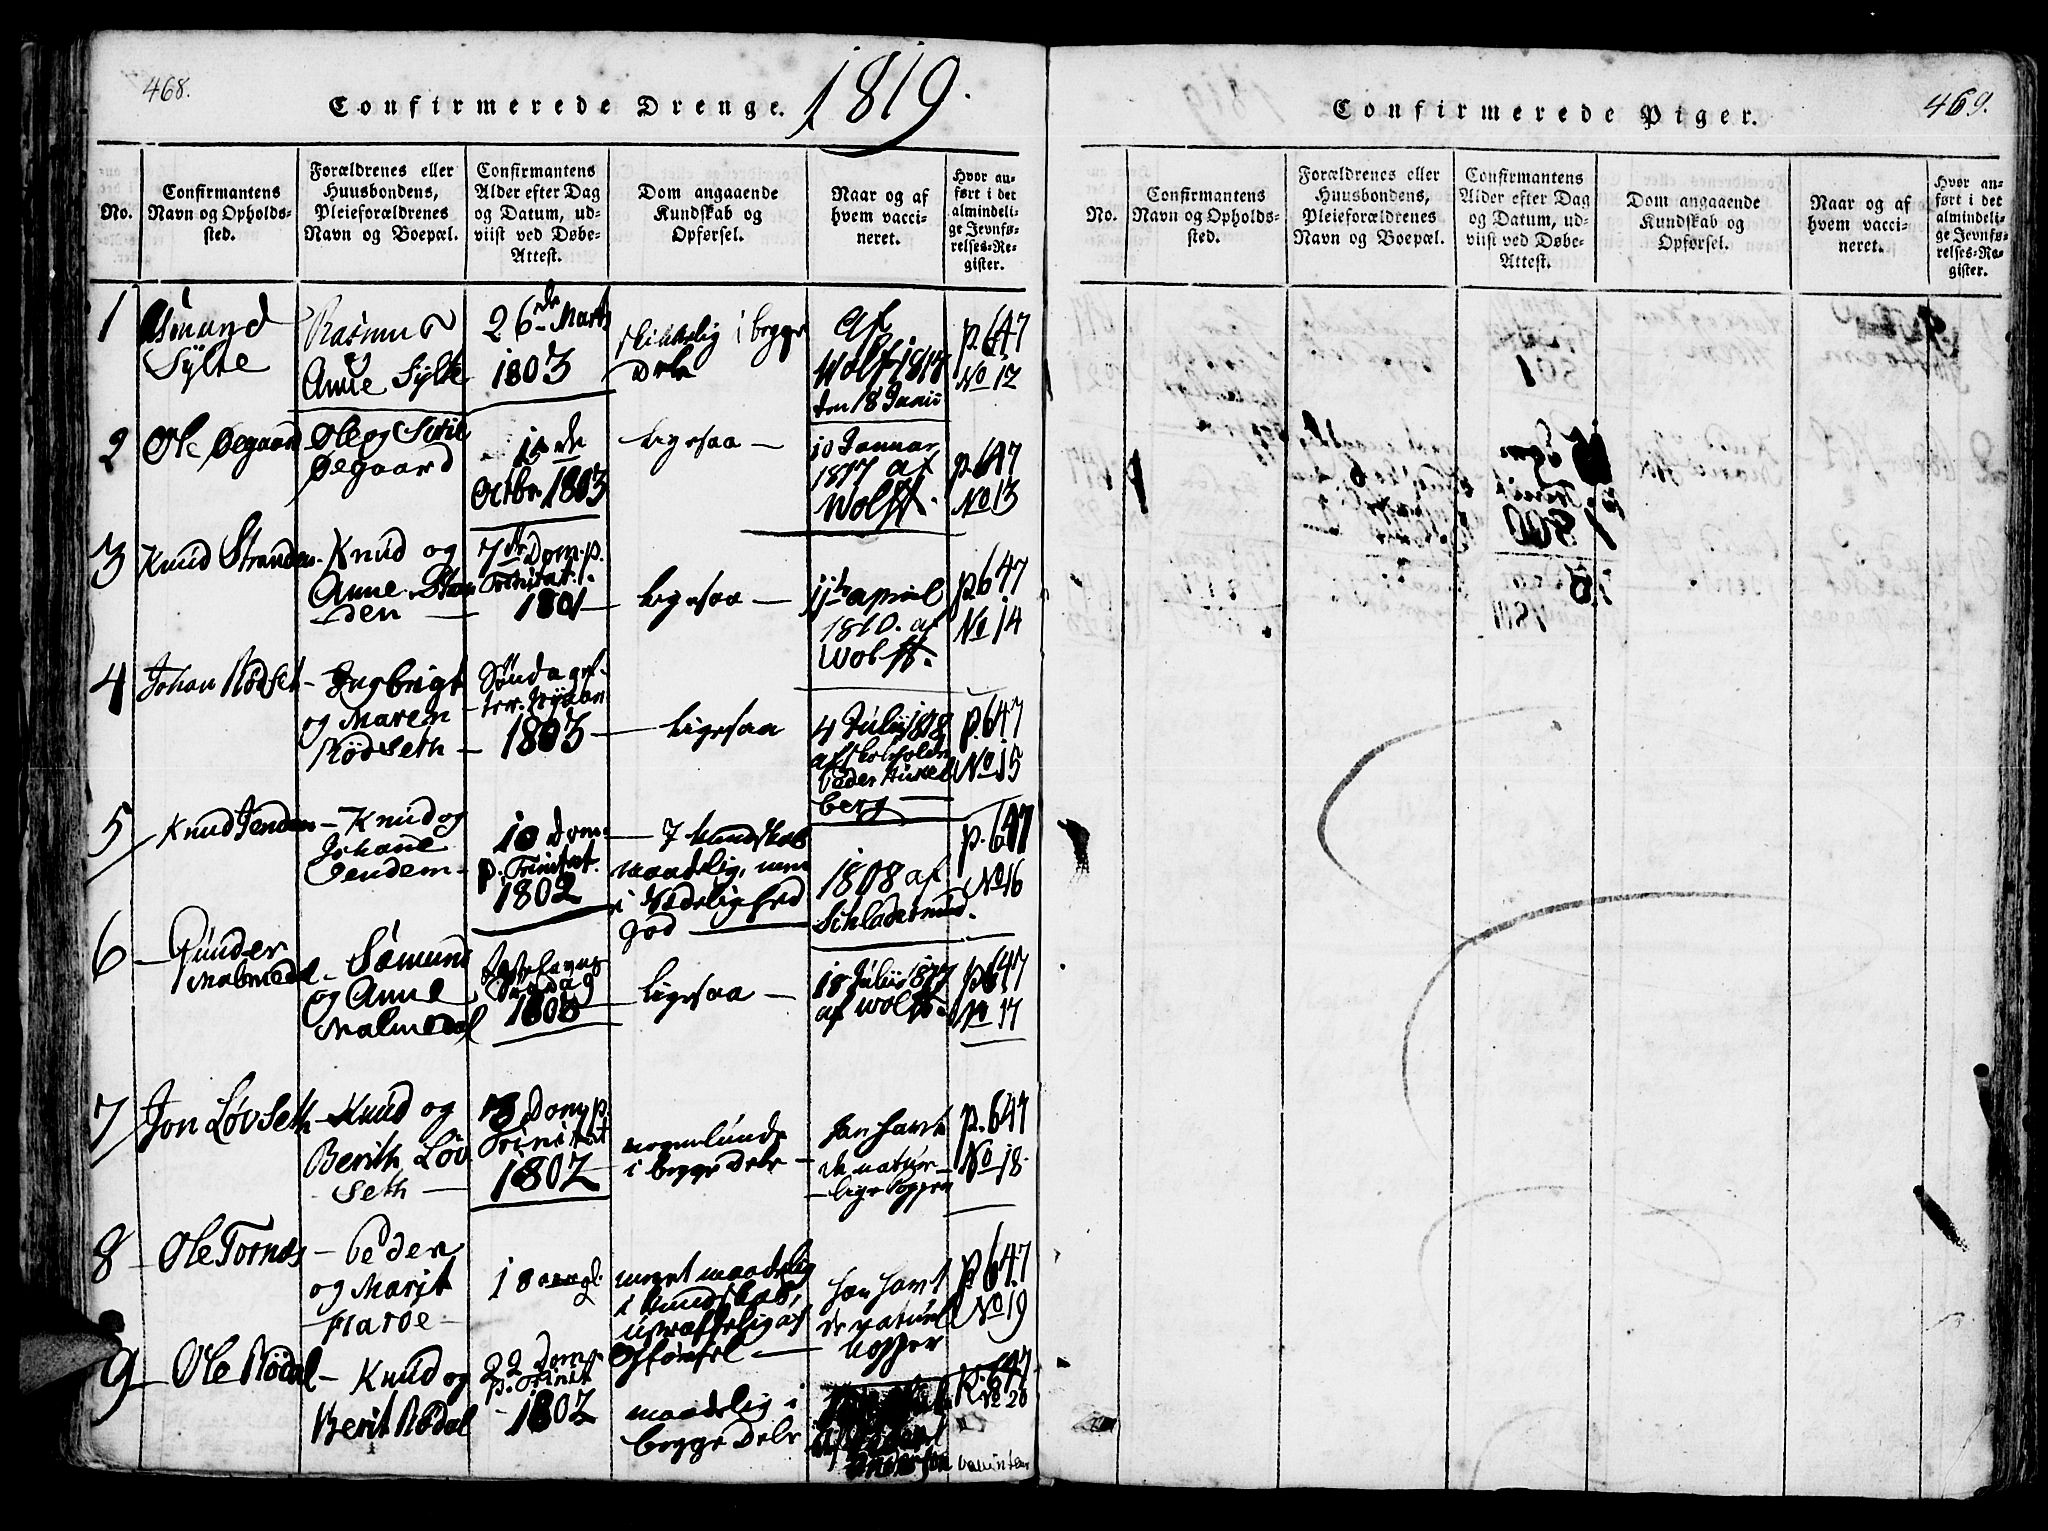 468.
Confirmerede Drenge. 1819.
No.
Confirmantens
Navn og Opholds-
sted.
Forældrenes eller
Huusbondens,
Pleieforældrenes
Navn og Boepæl.
Confirmantens
Alder efter Dag
og Datum, ud-
viist ved Døbe-
Attest.
Dom angaaende
Kundskab og
Opførsel.
Naar og af
hvem vacci-
neret.
Hvor an-
ført i det
almindeli-
ge Jevnfø-
relses-Re-
gister.
1
Asmund
Sylte
Rasmus &
Anne Sylte
26de Marts
1803
skikkelig i begge
Dele
Af
Wolf
den 18 Junii
p. 647
No 12
2
Ole Øegaard
Ole og
Øegaard
15de
Octbr 1803
ligesaa —
10 Januar
1817 af
Wolff.
p. 647
No 13
3
Knud Stranden
Knud og
Anne Stran
den —
7de Dom. p.
Trinitat.
1801
ligesaa —
april
1810. af
Wolff.
p. 647
No 14
4
Johan Rødset
— Ingbrigt
og Maren
Rødseth —
Søndag ef-
ter Nyaar
1803
— ligesaa
4 Julii 1818
af Skoleholder
Peder Hukel
berg —
p. 647
No 15
5
Knud Jendem
— Knud og
Johane
Jendem —
10 Dom.
p. Trinitat.
1802
— I Kundskab
maadelig, men
i Sædelighed
god —
1808 af
p. 647
No 16
6
Gunder
Malmedal
— Sømund
og Anne
Malmedal
Fastelavns
Søndag
ligesaa —
18 Julii 1817
af Wolff.
p. 647
No 17
7
Jon Løvseth
— Knud og
Berith Løv
seth —
Dom. p.
Trinitat
1802
nogenlunde
i begge Dele —
han havt
de natur-
lige Kopper
p. 647
No 18
8
Ole Tornes
— Peder
og Marit
Harøe —
18 aar gl.
meget maadelig
i Kundskab,
ustraffelig af
Opførsel —
han havt
de naturl
Kopper
p. 647
No 19
9
Ole Rødal
— Knud og
Berit Rødal
22 Dom.
p. Trinit
1802
maadelig i
begge Dele
Andersen
p. 647
No 20
469.
Confirmerede Piger.
No.
Confirmantens
Navn og Opholds-
sted.
Forældrenes eller
Huusbondens,
Pleieforældrenes
Navn og Boepæl.
Confirmantens
Alder efter Dag
og Datum, ud-
viist ved Døbe-
Attest.
Dom angaaende
Kundskab og
Opførsel.
Naar og af
hvem vacci-
neret.
Hvor an-
ført i det
almindeli-
ge Jevnfø-
relses-Re-
gister.